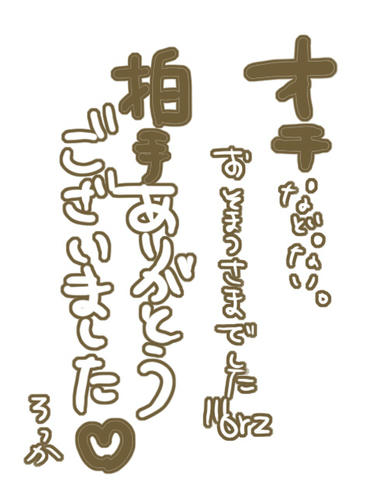 オチ
などない。
おそまつさまでしたorz
拍手ありがとう
ございました
ろっか